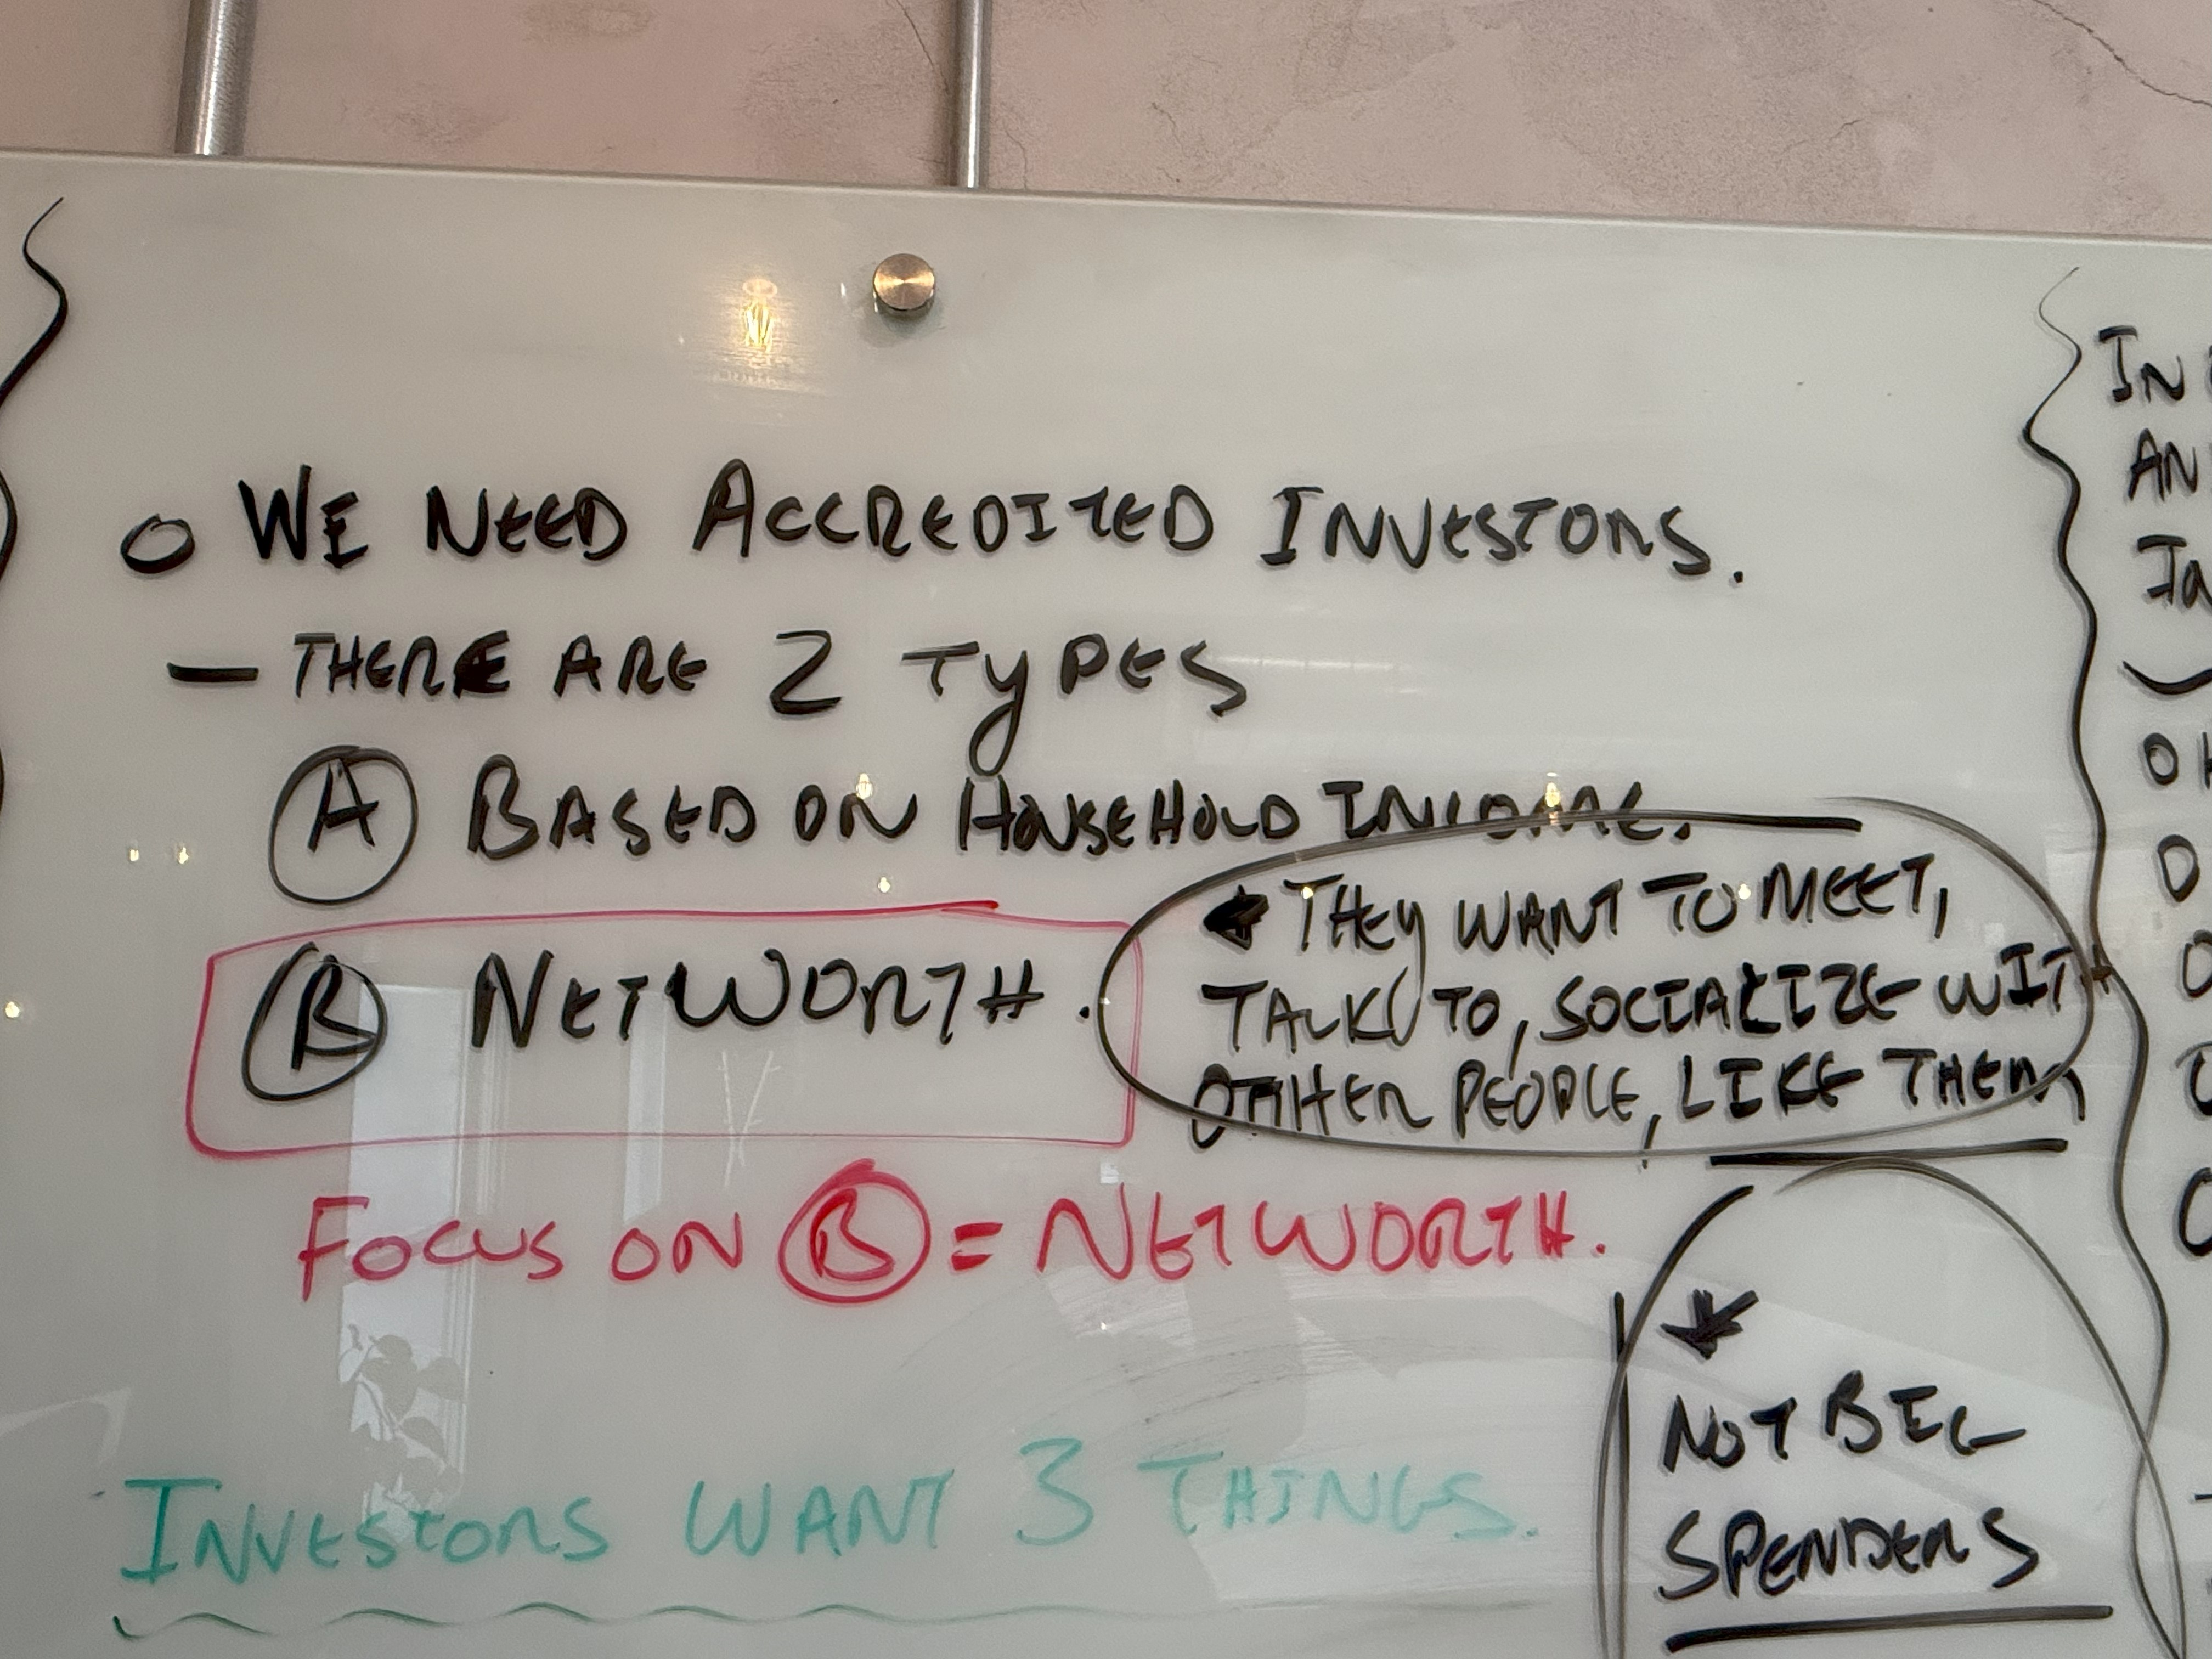 O WE NEED ACCREDITED INVESTORS.
— THERE ARE 2 TYPES
A BASED ON HOUSEHOLD INCOME.
B NETWORTH.
THEY WANT TO MEET,
TALK TO, SOCIALIZE WITH
OTHER PEOPLE, LIKE THEM
FOCUS ON B = NETWORTH.
NOT BIG
SPENDERS
INVESTORS WANT 3 THINGS.
IN
AN